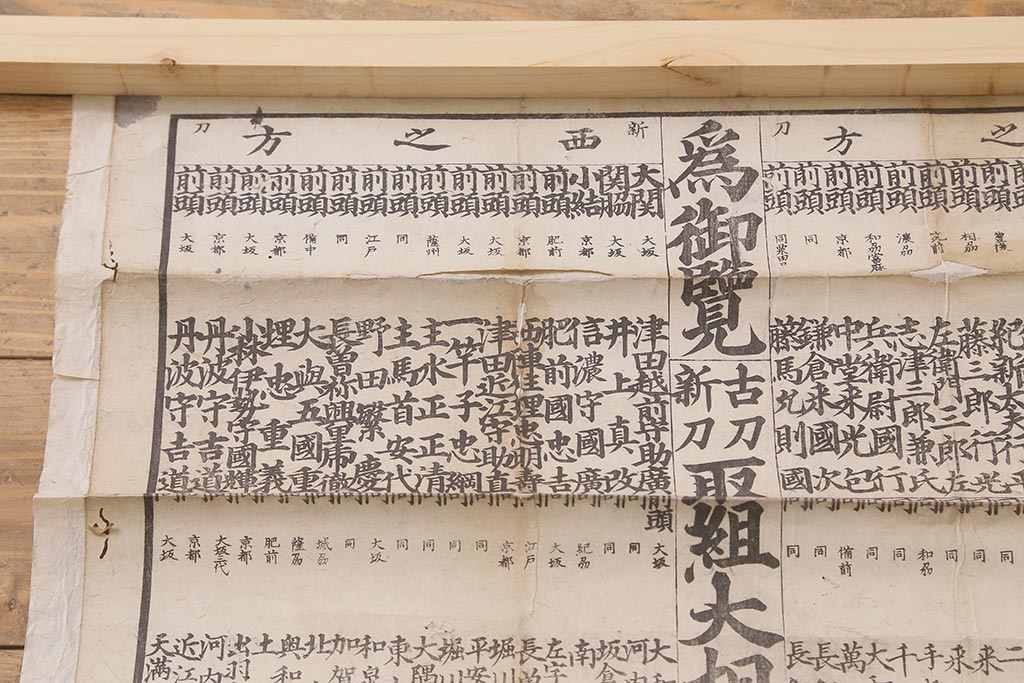 之方刀
前頭
前頭
前頭
前頭
前頭
前頭
前頭
前頭
相州
筑前
濃州
和州當麻
京都
同
同粟田口
紀新大夫行平
藤三郎行光
左衛門三郎左
志津三郎兼氏
兵衛尉國行
中堂来光包
鎌倉来國次
藤馬允則國
同
同
同
和州
同
同
備前
同
同
二
来
来
手
千
大
萬
長
長
為御覧
古刀
新刀
取組大相
新西之方刀
大関
関脇
小結
前頭
前頭
前頭
前頭
前頭
前頭
前頭
前頭
前頭
前頭
前頭
前頭
前頭
大坂
大坂
京都
肥前
京都
大坂
大坂
薩州
同
江戸
同
備中
京都
大坂
京都
大坂
津田越前守助廣
井上真改
信濃守國廣
肥前國忠吉
西陣住埋忠明壽
津田近江守助直
一竿子忠綱
主水正正清
主馬首安代
野田繁慶
長曽祢興里虎徹
大與五國重
埋忠重義
小林伊勢守國輝
丹波守吉道
丹波守吉道
前頭
大坂
同
同
紀州
大坂
江戸
京都
同
同
同
同
大坂
同
城州
薩州
肥前
京都
大坂三代
京都
大坂
大和
河内
坂倉
南
左字
長曽
堀川
平安
堀川
大隅
東
和泉
加賀
北
奥和
土
出羽
河内
近江
天満